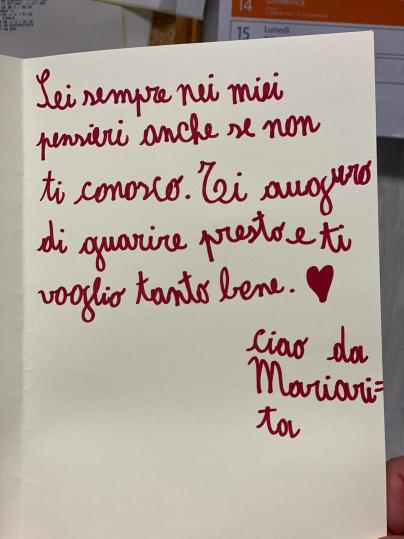 14 Domenica
15 Lunedì
Sei sempre nei miei
pensieri anche se non
ti conosco. Ti auguro
di guarire presto e ti
voglio tanto bene. ♥
ciao da
Mariari=
ta